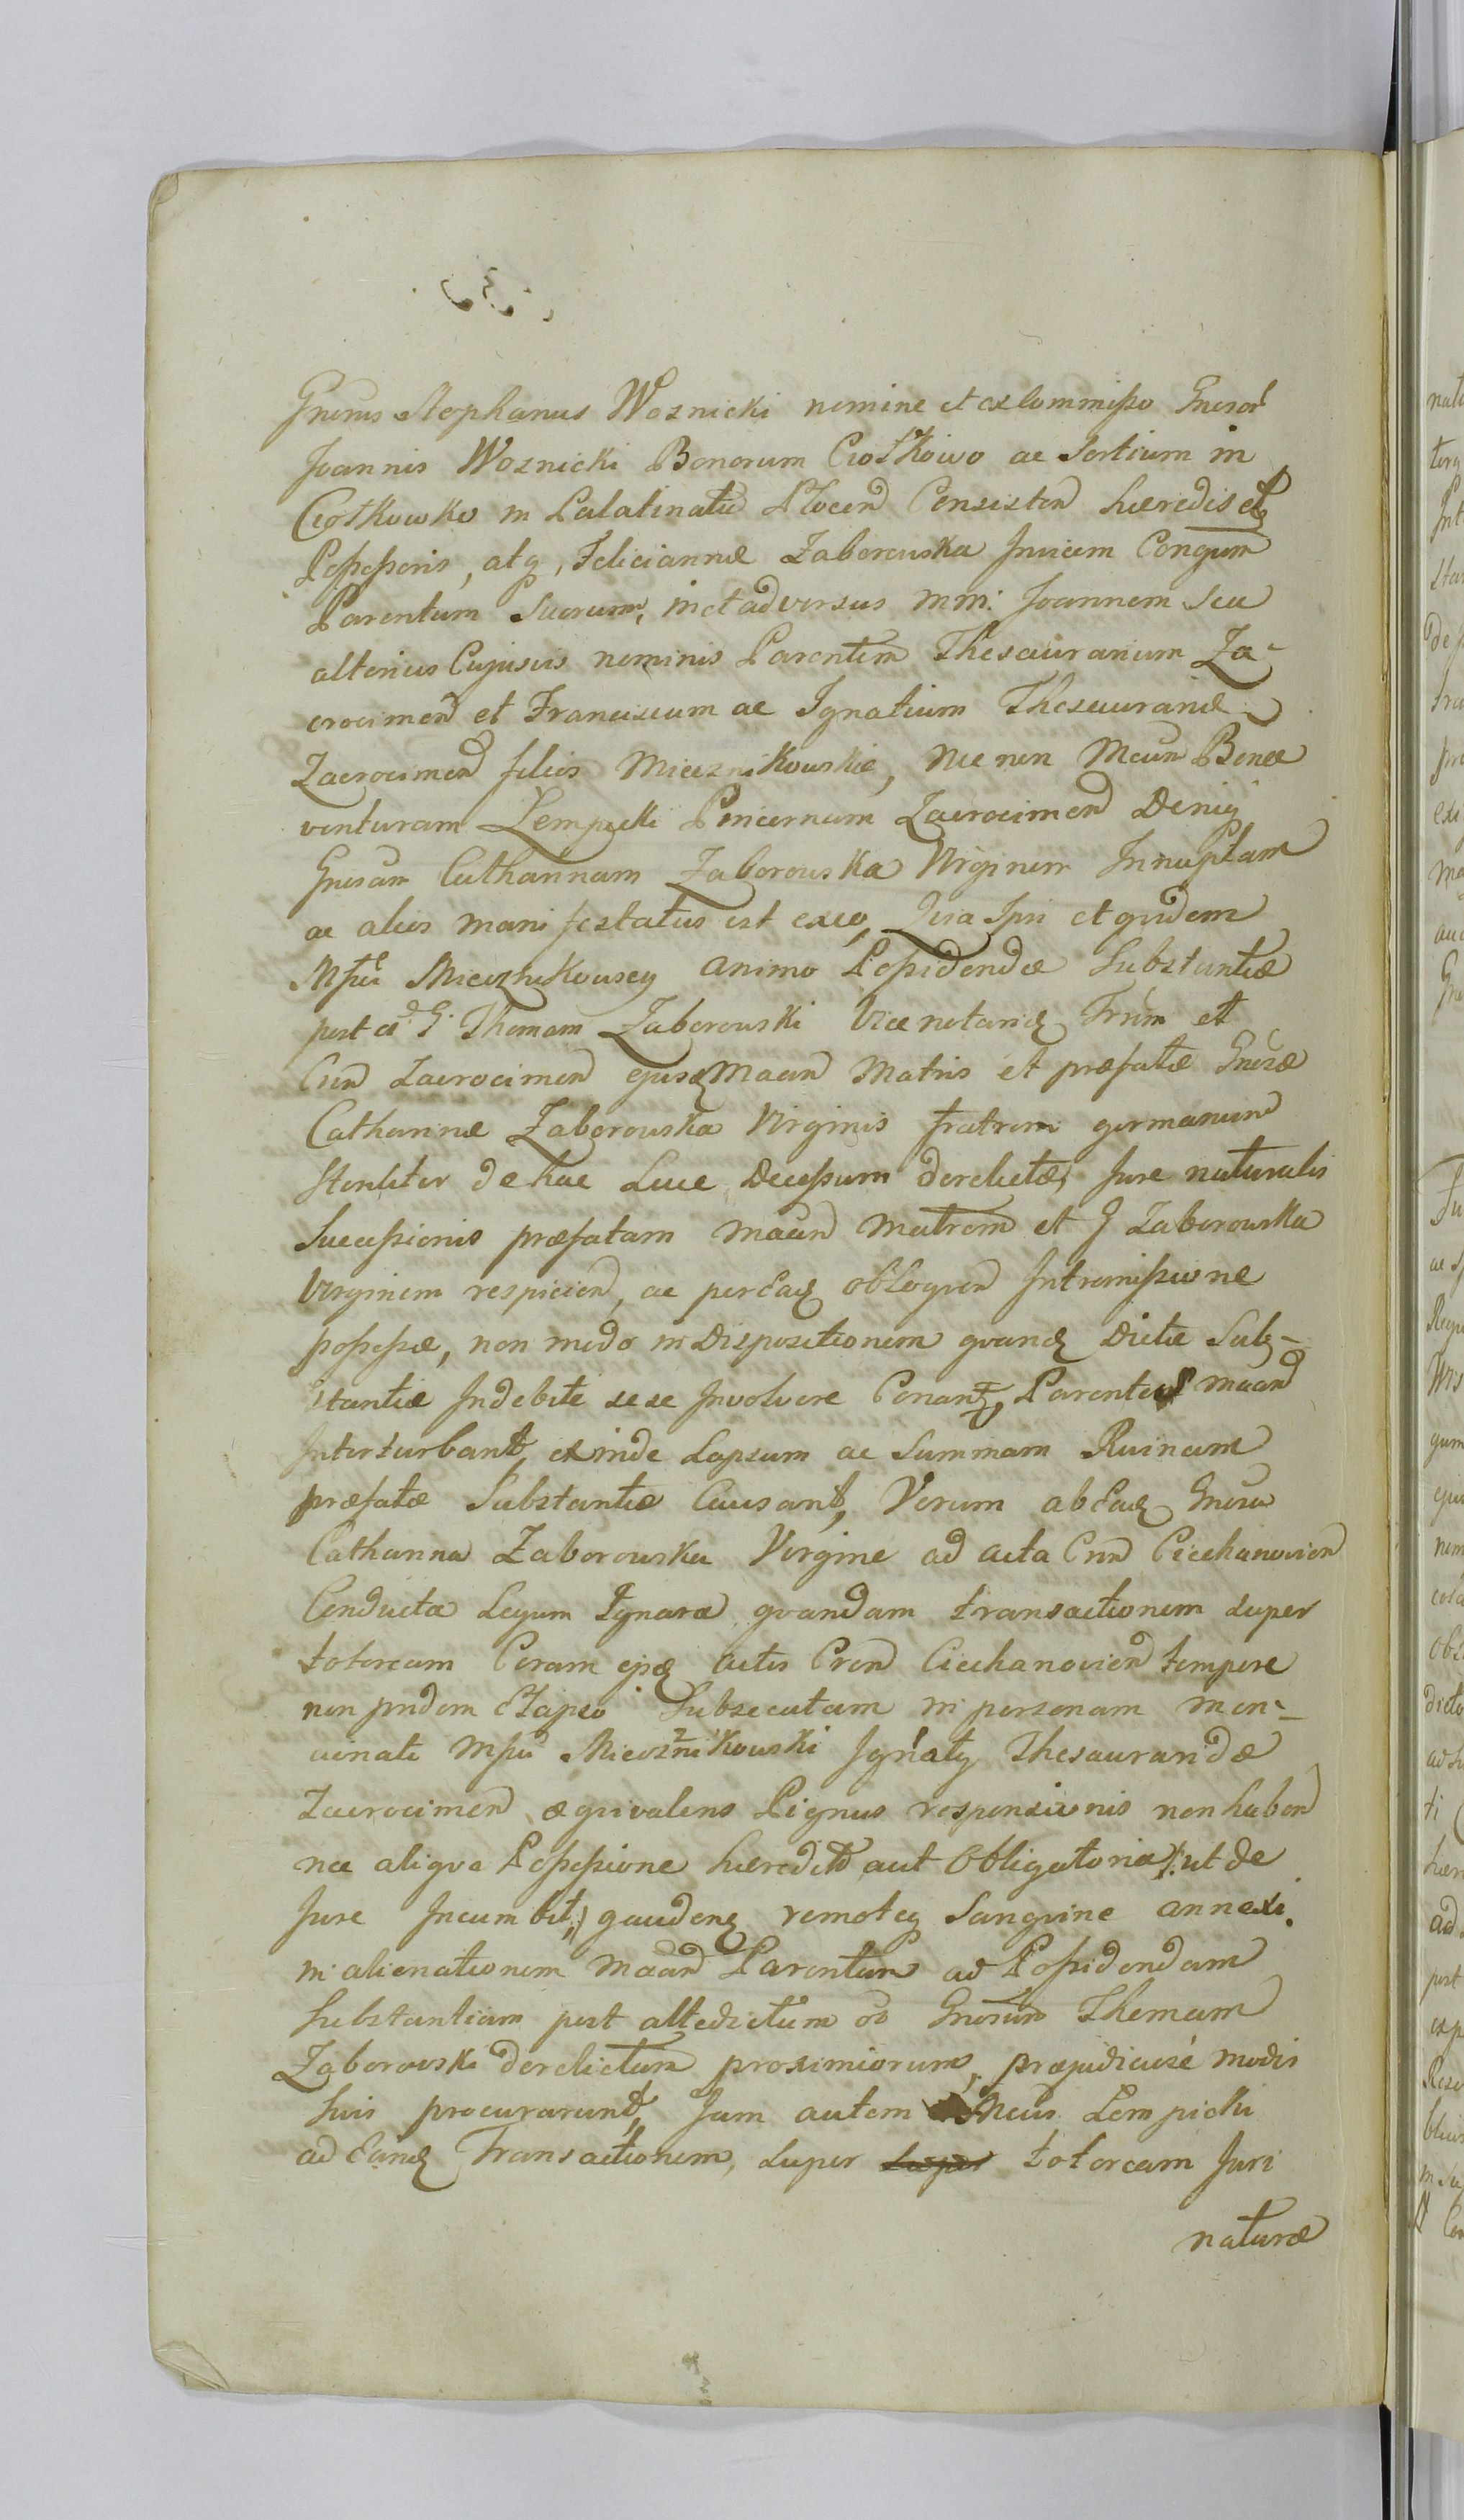 Gnerus Stephanus Woznicki nomine et ex Commisso Gneror
Joannis Woznicki Bonorum Ciołkowo ac Sortium in
Ciołkowko in Palatinatu Płocen Consisten hæredis et
Possessoris, atq, Feliciannæ Zaborowska Invicem Congum
Parentum Suorum, in et adversus mm: Joannem Seu
alterius Cujusvis nominis Parentem Thesaurarium Za-
crocimen et Franciscum ac Ignatium Thesauraride
Zacrocimen filios Miecznikowskie, Nec non Mcum Bona
venturam Lempicki Pincernam Zacrocimen Deniq
Gnesam Cathannam Zaborowska Virginem Innuptam
ac alios manifestatus est exeo, Quia Ipsi et quidem
Mfici Miecznikowscy animo Possidendæ Substantiæ
post Thomam Zaborowski Vice notariū Trūm et
Cun Zacrocimen ejusq Maan Matris et præfatæ Gneræ
Catharinæ Zaborowska Virginis fratrem germanum
Steriliter de hac Luce Decessum derelictæ, Jure naturalis
Successionis præfatam maan Matrem et G Zaborowska
Virginem respicien, ac per Eaq obloquen Intromissione
possessæ, non modo in Dispositionem quanq Dictæ Sub-
stantiæ Indebite sese Involvere Conant, Parentes maan
Interturbant, exinde Lapsum ac Summam Ruinam
præfatæ Substantiæ Causant, Verum ab Eaq Gnera
Catharina Zaborowska Virgine ad acta Crn Ciechanovien
Conducta Legum Ignara quandam transactionem super
totoream Coram ejsq actis Cren Ciechanovien tempore
non pridem Elapso Subsecutam in personam men-
cinati Mfici Miecznikowski Ignaty Thesauraridæ
Zacrocimen æquivalens Pignus responsionis non haben
nec aliqua Possessione hæredit aut Obligatoria /: ut de
Jure Incumbit, :/ gauden, remoteq Sanguine annexi.
in alienationem maan Parentum ad Possidendam
Substantiam post altedictum ol Gnesum Thomam
Zaborowski derelictam proximiorum, præjudiciose modis
Suis procurarunt, Jam autem Mcus Lempicki
ad Eanq Transactionem, super totoream Juri
naturæ